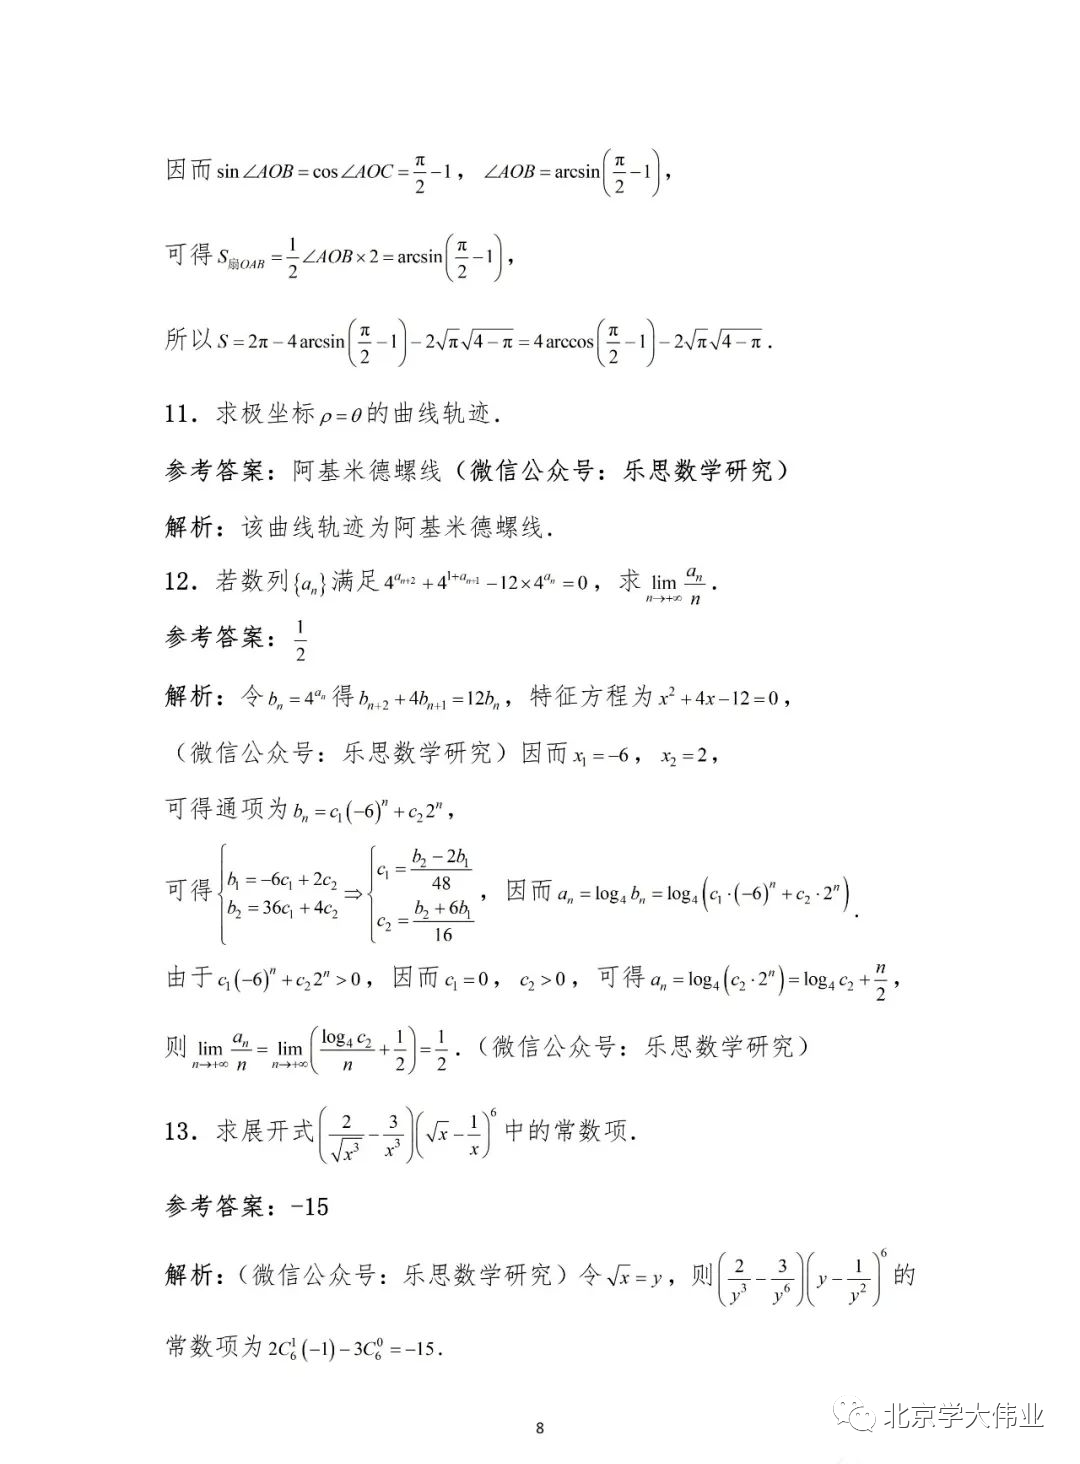 因而 sin∠AOB = cos∠AOC = π/2 − 1，∠AOB = arcsin(π/2 − 1)，
可得 S扇OAB = 1/2 ∠AOB × 2 = arcsin(π/2 − 1)，
所以 S = 2π − 4arcsin(π/2 − 1) − 2√π√(4 − π) = 4arccos(π/2 − 1) − 2√π√(4 − π).
11. 求极坐标 ρ = θ 的曲线轨迹.
参考答案：阿基米德螺线（微信公众号：乐思数学研究）
解析：该曲线轨迹为阿基米德螺线.
12. 若数列{aₙ}满足 4^(a_{n+2}) + 4^(1+a_{n+1}) − 12 × 4^(a_n) = 0，求 lim_{n→+∞} aₙ/n.
参考答案：1/2
解析：令 bₙ = 4^(a_n) 得 b_{n+2} + 4b_{n+1} = 12bₙ，特征方程为 x² + 4x − 12 = 0，
（微信公众号：乐思数学研究）因而 x₁ = −6，x₂ = 2，
可得通项为 bₙ = c₁(−6)ⁿ + c₂2ⁿ，
可得 { b₁ = −6c₁ + 2c₂ , b₂ = 36c₁ + 4c₂ ⇒ { c₁ = (b₂ − 2b₁)/48 , c₂ = (b₂ + 6b₁)/16 ，因而 aₙ = log₄ bₙ = log₄(c₁·(−6)ⁿ + c₂·2ⁿ).
由于 c₁(−6)ⁿ + c₂2ⁿ > 0，因而 c₁ = 0，c₂ > 0，可得 aₙ = log₄(c₂·2ⁿ) = log₄ c₂ + n/2，
则 lim_{n→+∞} aₙ/n = lim_{n→+∞} (log₄ c₂/n + 1/2) = 1/2.（微信公众号：乐思数学研究）
13. 求展开式 (2/√(x³) − 3/x³)(√x − 1/x)⁶ 中的常数项.
参考答案：-15
解析：（微信公众号：乐思数学研究）令 √x = y，则 (2/y³ − 3/y⁶)(y − 1/y²)⁶ 的
常数项为 2C₆¹(−1) − 3C₆⁰ = −15.
8
北京学大伟业